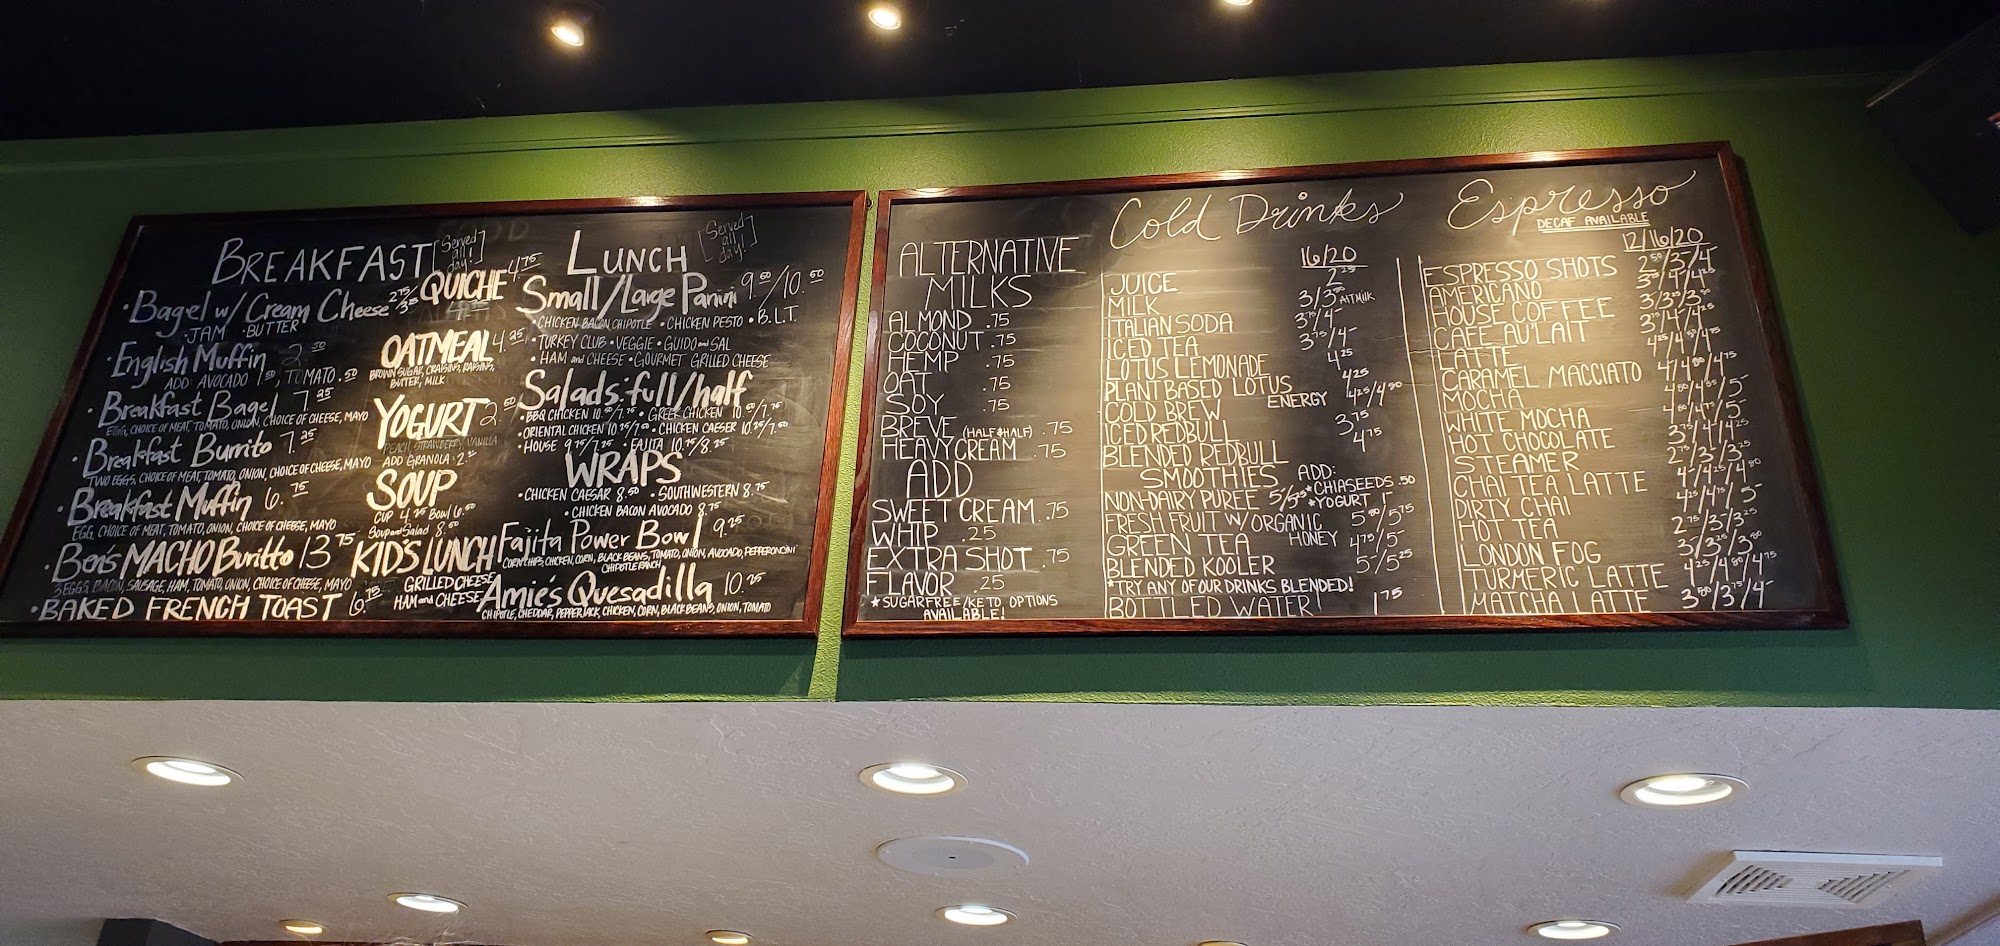 BREAKFAST [Served all day!]
• Bagel w/ Cream Cheese 2.75/3.25
• JAM • BUTTER
• English Muffin 2.50
ADD: AVOCADO 1.50, TOMATO .50
• Breakfast Bagel 7.25
EGG, CHOICE OF MEAT, TOMATO, ONION, CHOICE OF CHEESE, MAYO
• Breakfast Burrito 7.25
TWO EGGS, CHOICE OF MEAT, TOMATO, ONION, CHOICE OF CHEESE, MAYO
• Breakfast Muffin 6.75
EGG, CHOICE OF MEAT, TOMATO, ONION, CHOICE OF CHEESE, MAYO
• Ben's MACHO Buritto 13.75
3 EGGS, BACON, SAUSAGE, HAM, TOMATO, ONION, CHOICE OF CHEESE, MAYO
• BAKED FRENCH TOAST 6.75
QUICHE 4.75
OATMEAL 4.25
BROWN SUGAR, CRAISINS, RAISINS,
BUTTER, MILK
YOGURT 2.50
PEACH, STRAWBERRY, VANILLA
ADD GRANOLA
SOUP
CUP 4.25 Bowl 6.50
Soup and Salad 8.50
KID'S LUNCH
GRILLED CHEESE
HAM and CHEESE
LUNCH [Served all day!]
Small/Large Panini 9.50/10.50
• CHICKEN BACON CHIPOTLE • CHICKEN PESTO • B.L.T.
• TURKEY CLUB • VEGGIE • GUIDO and SAL
• HAM and CHEESE • GOURMET GRILLED CHEESE
Salads: full/half
• BBQ CHICKEN • GREEK CHICKEN
• ORIENTAL CHICKEN • CHICKEN CAESER
• HOUSE 9.75/7.25 • FAJITA 10.75/8.25
WRAPS
• CHICKEN CAESAR 8.50 • SOUTHWESTERN 8.75
• CHICKEN BACON AVOCADO 8.75
Fajita Power Bowl 9.25
CORN CHIPS, CHICKEN, CORN, BLACK BEANS, TOMATO, ONION, AVOCADO, PEPPERONCINI
CHIPOTLE RANCH
Amie's Quesadilla 10.25
CHIPOTLE, CHEDDAR, PEPPERJACK, CHICKEN, CORN, BLACK BEANS, ONION, TOMATO
ALTERNATIVE
MILKS
ALMOND .75
COCONUT .75
HEMP .75
OAT .75
SOY .75
BREVE (HALF & HALF) .75
HEAVY CREAM .75
ADD
SWEET CREAM .75
WHIP .25
EXTRA SHOT .75
FLAVOR .25
* SUGAR FREE/KETO OPTIONS
AVAILABLE!
Cold Drinks
16/20
JUICE 2.25
MILK 3/3.50 ALT MILK
ITALIAN SODA 3.75/4-
ICED TEA 3.75/4-
LOTUS LEMONADE 4.25
PLANT BASED LOTUS
ENERGY 4.25
COLD BREW 4.25/4.50
ICED REDBULL 3.75
BLENDED REDBULL 4.75
SMOOTHIES
ADD:
* CHIASEEDS .50
* YOGURT 1-
NON-DAIRY PUREE 5/5.25
FRESH FRUIT W/ ORGANIC
HONEY 5.50/5.75
GREEN TEA 4.75/5-
BLENDED KOOLER 5/5.25
* TRY ANY OF OUR DRINKS BLENDED!
BOTTLED WATER 1.75
Espresso
DECAF AVAILABLE
12/16/20
ESPRESSO SHOTS 2.50/3/4
AMERICANO
HOUSE COFFEE
CAFE AU'LAIT
LATTE
CARAMEL MACCIATO
MOCHA
WHITE MOCHA
HOT CHOCOLATE
STEAMER
CHAI TEA LATTE
DIRTY CHAI
HOT TEA
LONDON FOG
TURMERIC LATTE
MATCHA LATTE